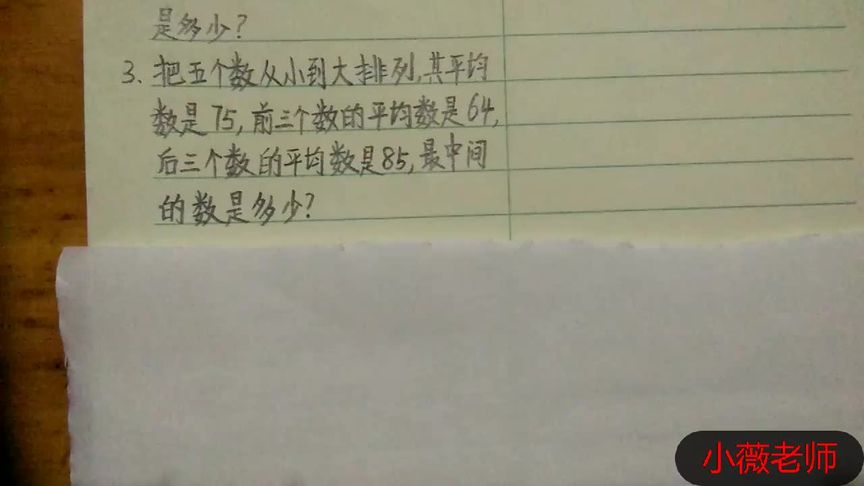 是多少?
3. 把五个数从小到大排列,其平均
数是75,前三个数的平均数是64,
后三个数的平均数是85,最中间
的数是多少?
小薇老师